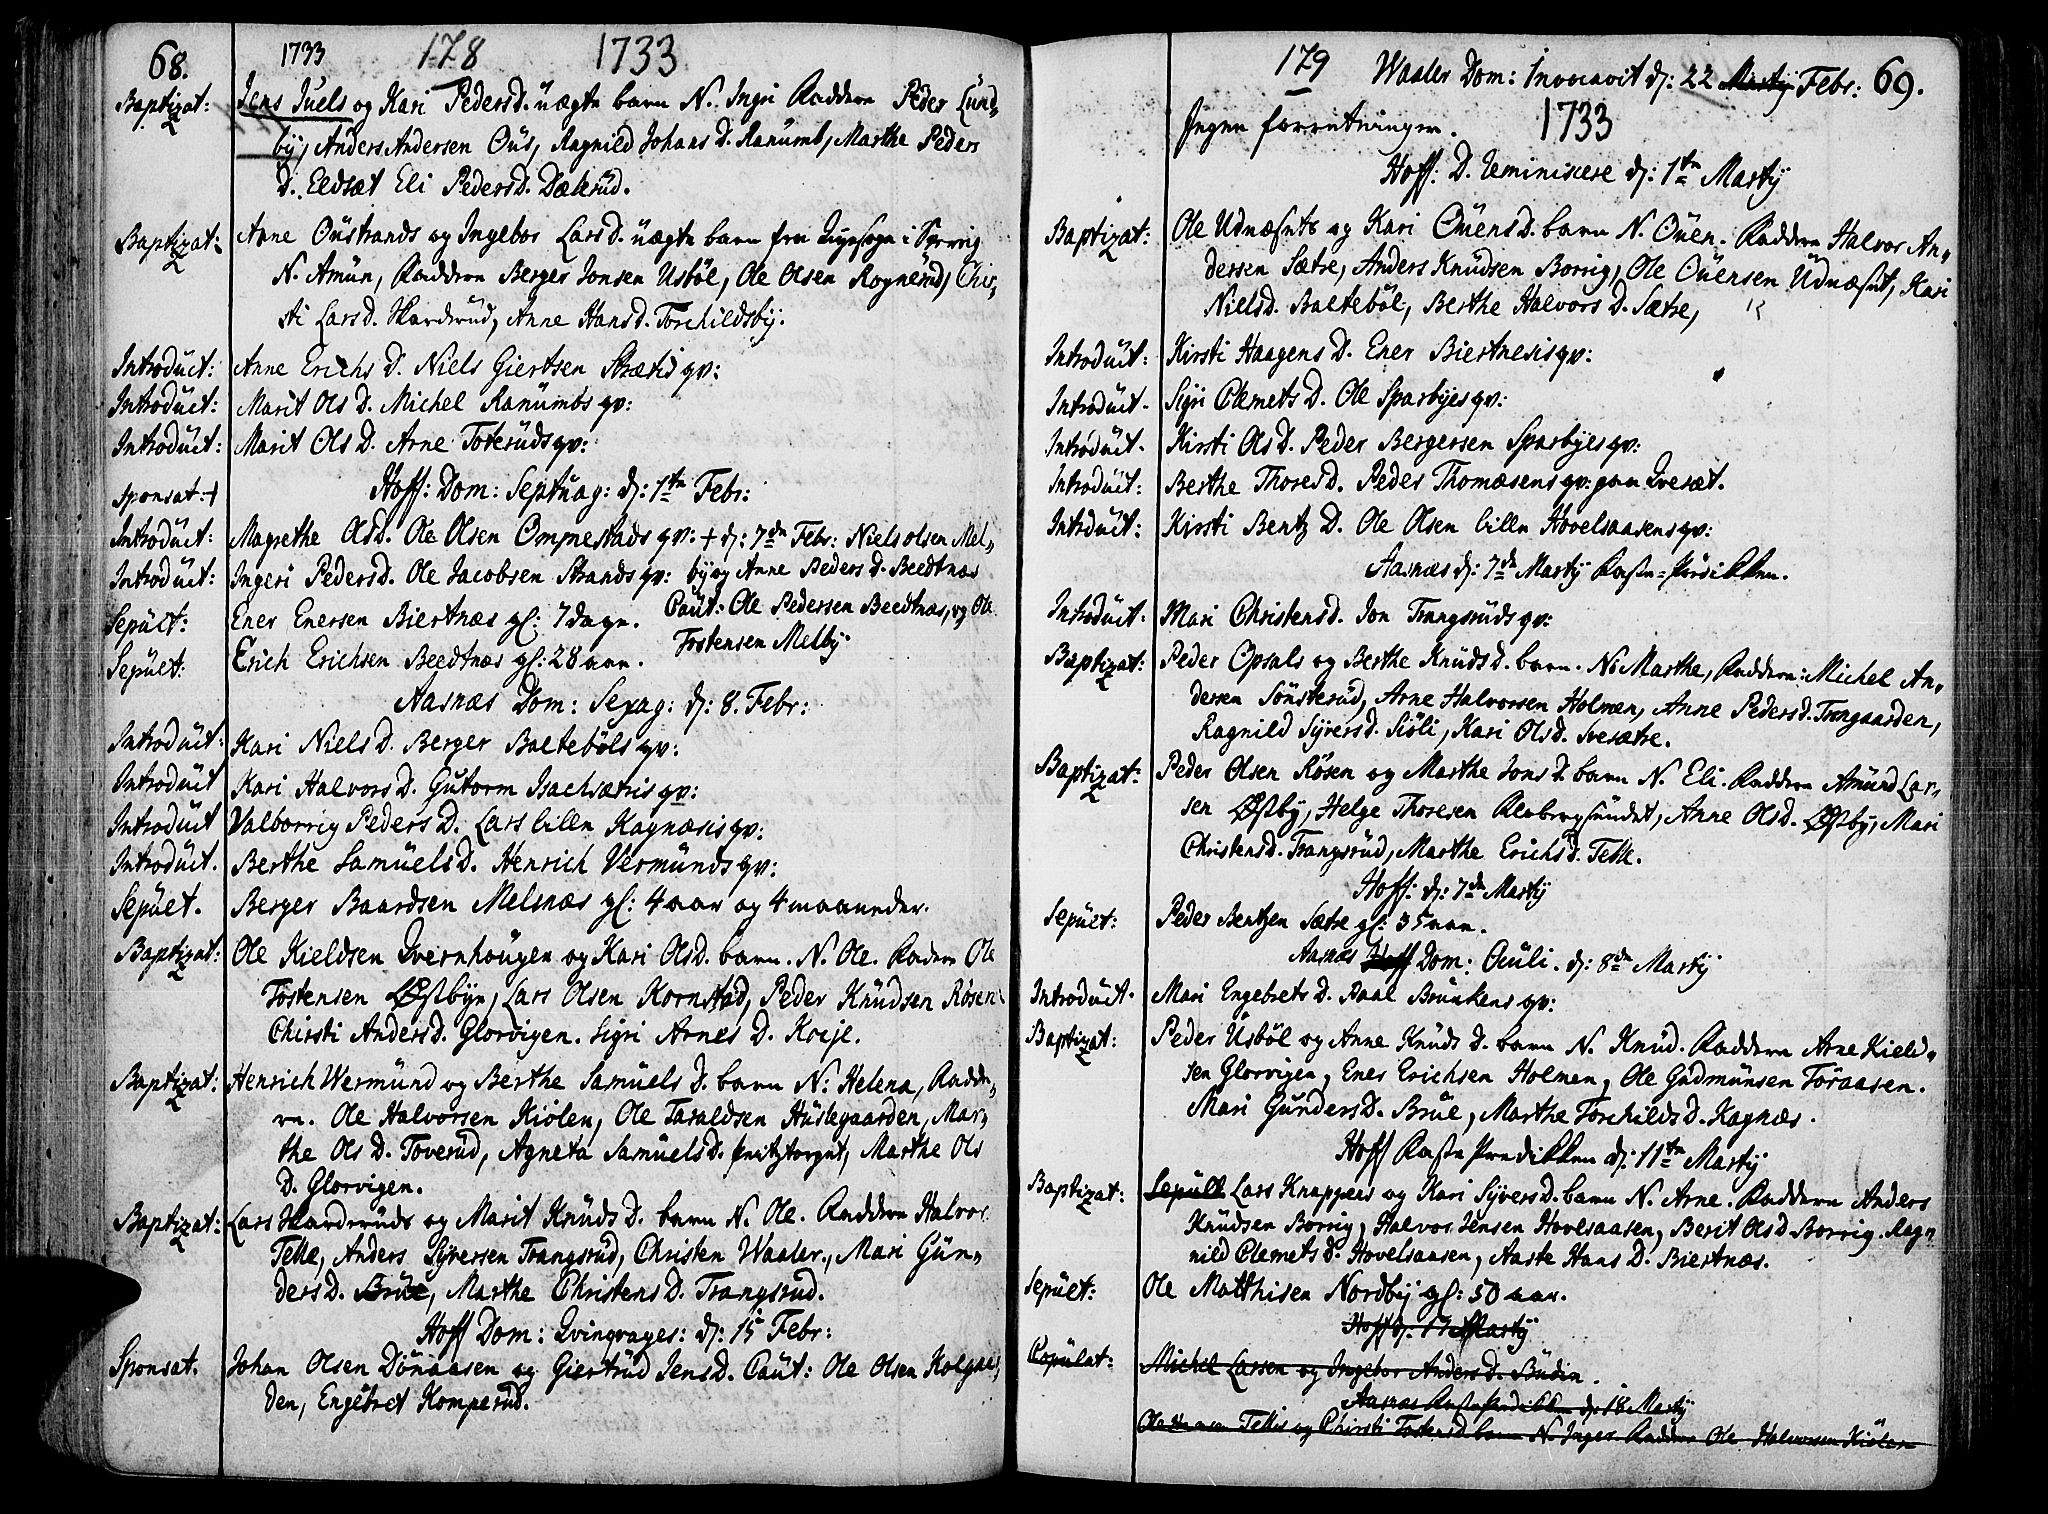 68. 1733 178 1733
Baptizat: Jens Juels og Kari Pedersd. uægte barn N. Ingri Faddere Peder Lund-
by, Anders Andersen Ous, Ragnild Johans D. Ranumb, Marthe Peders
D. Eldsæt Eli Pedersd. Dælerud.
Baptizat: Arne Oustrands og Ingebor Larsd. uægte barn fra
N. Amun, Faddere Berger Jonsen Usbøl, Ole Olsen Rognerud, Chir-
sti Larsd. Skarderud, Anne Hansd. Torchildsby.
Introduct: Anne Erichs D. Niels Giertsen Strætis qv:
Introduct: Marit Ols D. Michel Ranumbs qv:
Introduct: Marit Ols D. Arne Toteruds qv:
Hoff: Dom: Septuag: d: 1te Febr:
Sponsat: +
Introduct: Magrethe Olsd. Ole Olsen Ompnestads qv. + d: 7de Febr: Niels olsen Mel-
Introduct: Ingeri Pedersd. Ole Jacobsen Strands qv: by og Anne Peders D. Beedtnæs
Sepult: Ener Enersen Biertnæs gl: 7 dage. Caut: Ole Pedersen Beedtnæs, og Ole
Tostensen Melby
Sepult: Erich Erichsen Beedtnæs gl: 28 aar.
Aasnæs Dom: Sexag: d: 8. Febr:
Introduct: Kari Niels D. Berger Baltebøls qv:
Introduct Kari Halvors D. Gutorm Isachsætris qv:
Introduct Valborrig Peders D. Lars lille Kagnæsis qv:
Introduct. Berthe Samuelsd. Henrich Vermunds qv:
Sepult. Berger Baardsen Melsnæs gl: 4 aar og 4 maaneder.
Baptizat: Ole Kieldsen Qvernhougen og Kari Olsd. barn. N. Ole. Faddere Ole
Tostensen Østbye, Lars Olsen Kornstad, Peder Knudsen Røsen
Chirsti Andersd. Glorvigen. Sigri Arnes D. Koeje.
Baptizat: Henrich Wermund og Berthe Samuels D. barn N: Helena, Fadde-
re. Ole Halvorsen Kiølen, Ole Taraldsen Huslegaarden, Mar-
the Ols D. Toverud, Agneta Samuelsd. Fritztorpet, Marthe Ols
D. Glorvigen.
Baptizat: Lars Skarderuds og Marit Knuds D. barn N. Ole. Faddere Halvor
Telle, Anders Syversen Trangsrud, Christen Waaler, Mari Gun-
dersd. Brue, Marthe Christens D. Trangsrud.
Hoff Dom: Qvinqvages: d: 15 Febr:
Sponsat. Johan Olsen Dønaasen og Giertrud Jensd. Caut: Ole Olsen Kolgaar-
den, Engebret Komperud.
179 Waaler Dom: Invocavit d: 22 Martij Febr: 69.
Ingen forretninger. 1733
Hoff: D. Reminiscere d: 1te Martij
Baptizat: Ole Udnæsets og Kari Ouensd. barn N. Ouen. Faddere Halvor An-
dersen Sætre, Anders Knudsen Borrig, Ole Ouensen Udnæset, Kari
Nielsd. Baltebøl, Berthe Halvors D. Sætre,
Introduct: Kirsti Haagens D. Ener Biertnesis qv:
Introduct. Sigri Clemets D. Ole Sparbyes qv:
Introduct. Kirsti Ols D. Peder Bergersen Sparbyes qv:
Introduct: Berthe Thoresd. Peder Thomæsens qv: paa Qvesæt.
Introduct: Kirsti Bentz D. Ole Olsen lille Hovelsaasens qv:
Aasnæs d: 7de Martij Faste-Prædikken.
Introduct. Mari Christensd. Jon Trangsruds qv:
Baptizat: Peder Opsals og Berthe Knuds D. barn. N. Marthe, Faddere: Michel An-
dersen Sønsterud, Arne Halvorsen Holmen, Anne Pedersd. Trægaarden,
Ragnild Syversd. Siøli, Kari Olsd. Svesætre.
Baptizat: Peder Olsen Røsen og Marthe Jons D. barn N. Eli. Faddere Amund Lar-
sen Østby, Helge Thoresen Flaberg sundet, Anne Olsd. Østby, Mari
Christensd. Trangsrud, Marthe Erichsd. Telle.
Hoff: d: 7de Martij
Sepult: Peder Bentzen Sætre gl: 35 aar.
Aasnæs Hoff Dom: Oculi. d: 8de Martij
Introduct. Mari Engebrets D. Paal Brunkens qv:
Baptizat: Peder Usbøl og Anne Knuds D. barn N. Knud. Faddere Arne Kield-
sen Glorvigen, Ener Erichsen Holmen, Ole Gudmunsen Toraasen.
Mari Gunders D. Brue, Marthe Torchilds D. Kagnæs.
Hoff Faste Prædikken d: 11te Martij
Baptizat: Sepult Lars Knappens og Kari Syversd. barn N. Arne. Faddere Anders
Knudsen Borrig, Halvor Jensen Hovelsaasen, Berit Olsd Borrig. Rag-
nild Clemets D. Hovelsaasen, Aaste Hans D. Biertnæs.
Sepult: Ole Matthisen Nordby gl: 50 aar.
Hoff d: 17 Martij
Copulat: Michel Larsen og Ingebor Anders D. Budin.
Aasnæs Faste Prædikken d: 18 Martij
Ole Hansen Tellis og Chirsti Tostensd barn N. Inger Faddere Ole Halvorsen Kiølen